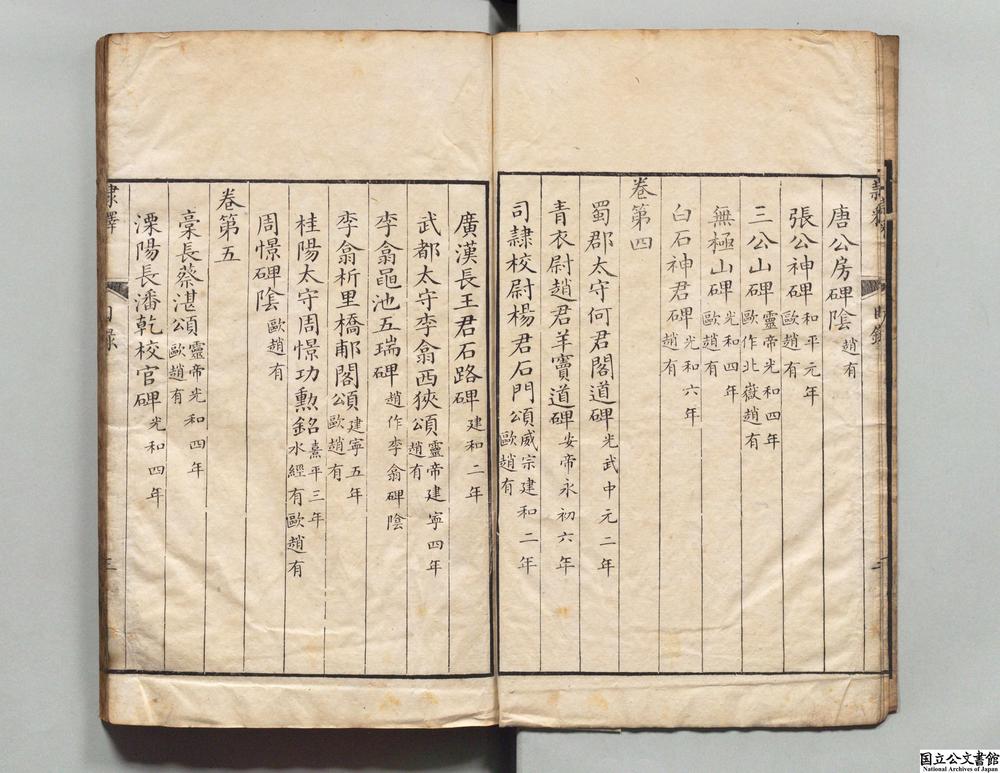 唐公房碑陰 趙有
張公神碑 和平元年 歐趙有
三公山碑 靈帝光和四年 歐作北嶽趙有
無極山碑 光和四年 歐趙有
白石神君碑 光和六年 趙有
卷第四
蜀郡太守何君閣道碑 光武中元二年
青衣尉趙君羊竇道碑 安帝永初六年
司隷校尉楊君石門頌 威宗建和二年 歐趙有
廣漢長王君石路碑 建和二年
武都太守李翕西狹頌 靈帝建寧四年 趙有
李翕黽池五瑞碑 趙作李翕碑陰
李翕析里橋郙閣頌 建寧五年 歐趙有
桂陽太守周憬功勲銘 熹平三年 水經有歐趙有
周憬碑陰 歐趙有
卷第五
稾長蔡湛頌 靈帝光和四年 歐趙有
溧陽長潘乾校官碑 光和四年
隸釋 目錄 三
国立公文書館
National Archives of Japan